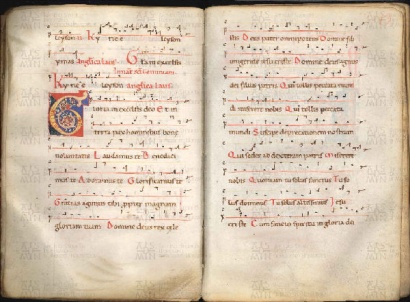 leyson Ky ri e leyson
ymnus angelicus Gloria in excelsis
Ky ri e leyson angelica laus
Gloria in excelsis deo Et in
terra pax hominibus bone
voluntatis Laudamus te Benedici
mus te Adoramus te Glorificamus te
Gratias agimus tibi propter magnam
gloriam tuam Domine deus rex cele
stis Deus pater omnipotens Domine fili
unigenite iesu christe Domine deus agnus
dei filius patris Qui tollis peccata mun
di miserere nobis Qui tollis peccata
mundi Suscipe deprecationem nostram
Qui sedes ad dexteram patris miserere
nobis Quoniam tu solus sanctus Tu so
lus dominus Tu solus altissimus Iesu
christe Cum sancto spiritu in gloria dei